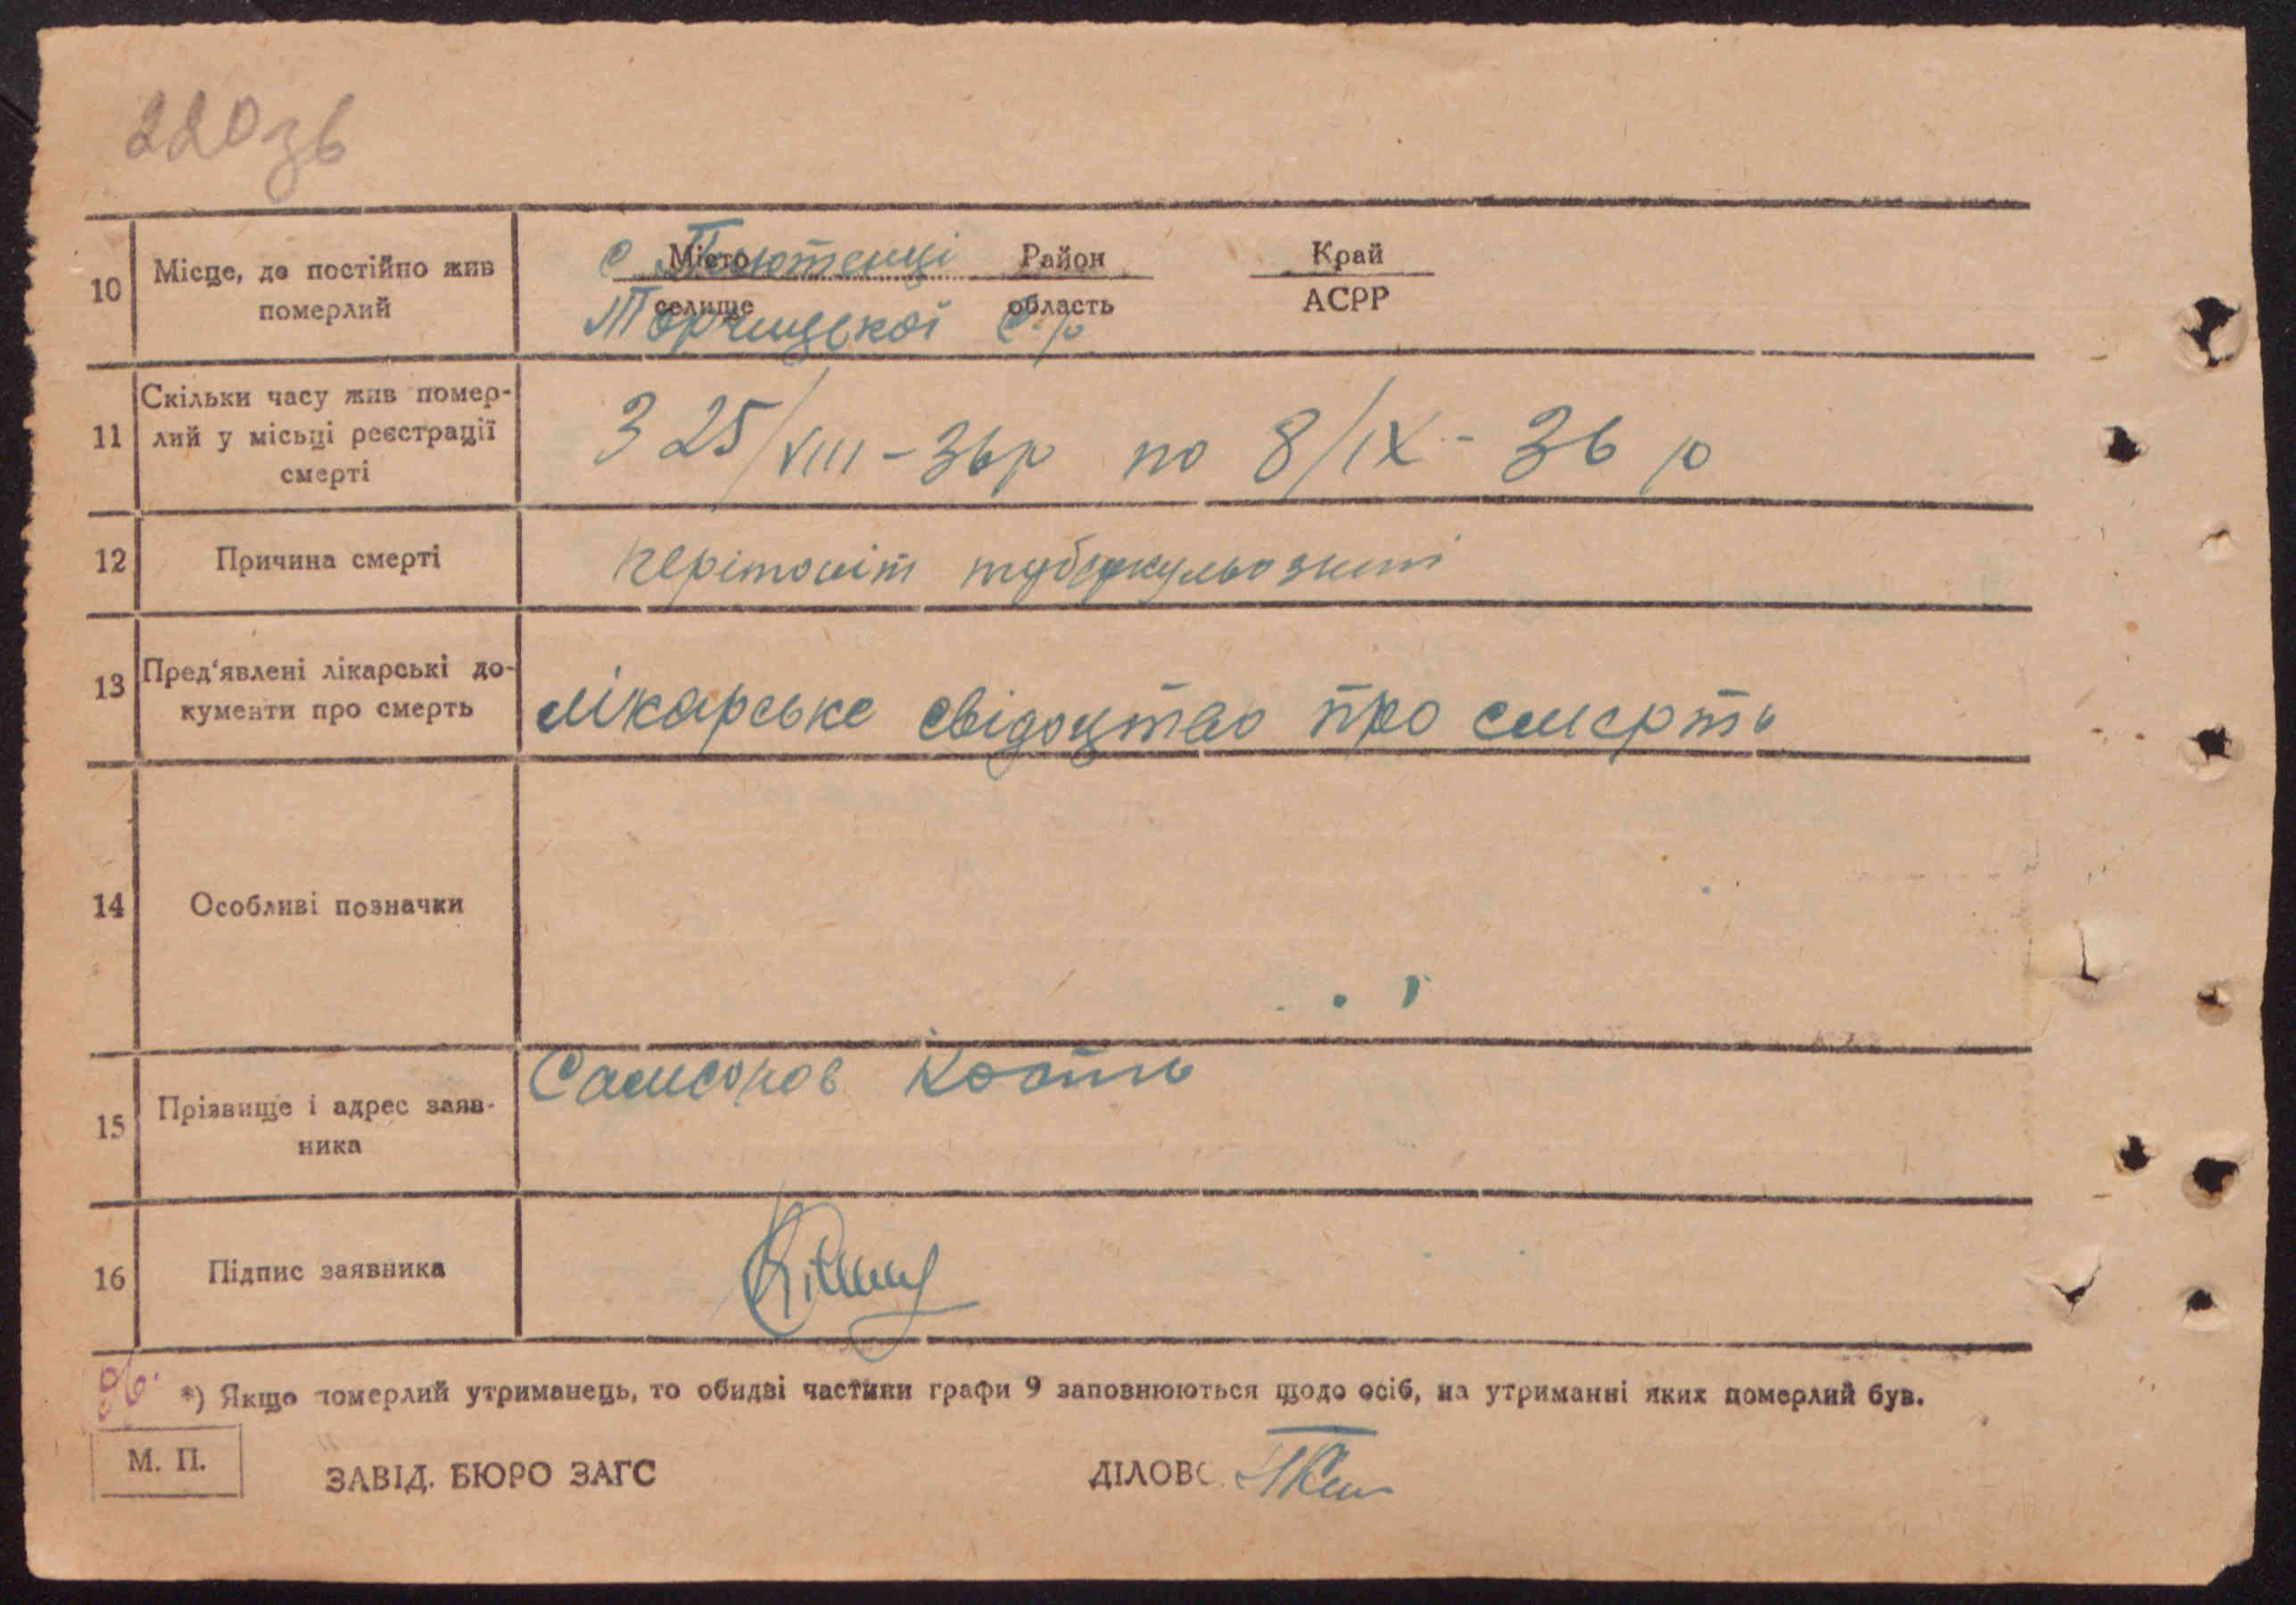 220 зв
10 Місце, де постійно жив померлий
Місто
селище
Район
область
Край
АСРР
с
с/р
11 Скільки часу жив помер-
лий у місці реєстрації
смерті
З 25/VIII - 36 р по 8/IX - 36 р
12 Причина смерті
перітоніт туберкульозний
13 Пред'явлені лікарські до-
кументи про смерть
лікарське свідоцтво про смерть
14 Особливі позначки
15 Прізвище і адрес заяв-
ника
Самсонов Кость
16 Підпис заявника
*) Якщо померлий утриманець, то обидві частини графи 9 заповнюються щодо осіб, на утриманні яких померлий був.
М. П.
ЗАВІД. БЮРО ЗАГС
ДІЛОВО